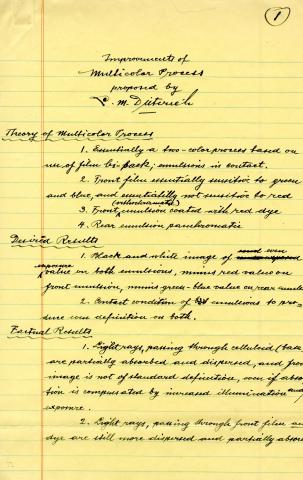 1
Improvements of
Multicolor Process
proposed by
L. M. Dieterich
Theory of Multicolor Process
1. Essentially a two-color process based on
use of film bi-pack; emulsions in contact.
2. Front film essentially sensitive to green
and blue, and essentially not sensitive to red
(orthochromatic)
3. Front emulsion coated with red dye
4. Rear emulsion panchromatic
Desired Results
1. Black and white image of good even
exposure
value on both emulsions, minus red value on
front emulsion, minus green-blue value on rear emuls
2. Contact condition of emulsions to pro-
sure definition on both.
Factual Results
1. Light rays, passing through celluloid (back
are partially absorbed and dispersed, and fron
image is not of standard definition, even if abso
tion is compensated by increased illumination and
exposure.
2. Light rays, passing through front film an
dye are still more dispersed and partially absor